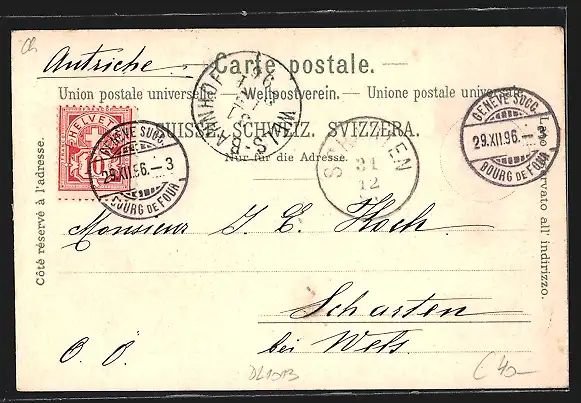 Ch
Autriche
Carte postale.
Union postale universelle. — Weltpostverein. — Unione postale universale.
SUISSE. SCHWEIZ. SVIZZERA.
Nur für die Adresse.
Côté réservé à l'adresse.
Lato riservato all' indirizzo.
HELVETIA
10
GENÈVE SUCC.
29.XII.96.—3
BOURG DE FOUR
WELS-BAHNHOF
SCHARTEN
31
12
GENÈVE SUCC.
29.XII.96.—3
BOURG DE FOUR
Monsieur J. C. Koch
Scharten
bei Wels
O. Ö.
DL1013